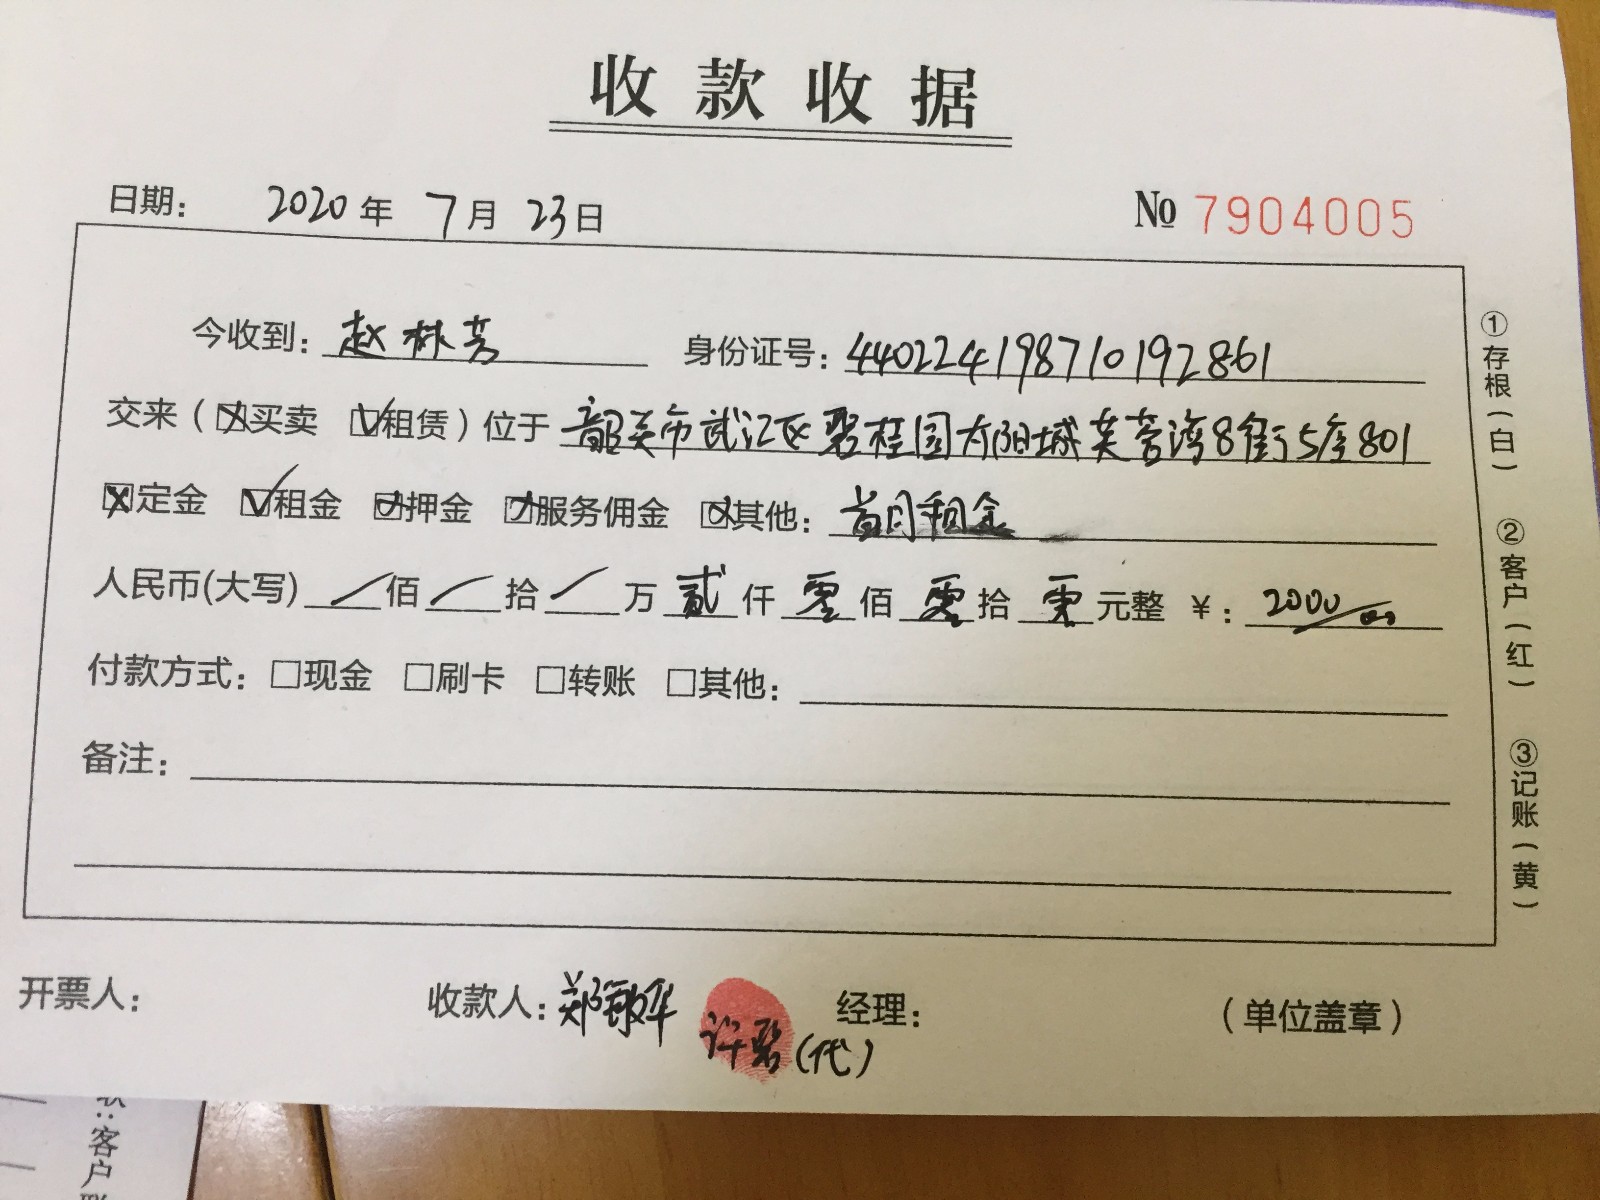 收款收据
日期: 2020年 7月 23日 № 7904005
今收到: 赵林芳 身份证号: 440224198710192861
交来(☒买卖 ☑租赁)位于 韶关市武江区碧桂园太阳城芙蓉湾8街5座801
☒定金 ☑租金 ☒押金 ☒服务佣金 ☒其他: 首月租金
人民币(大写) / 佰 / 拾 / 万 贰 仟 零 佰 零 拾 零 元整 ¥: 2000/00
付款方式: □现金 □刷卡 □转账 □其他:
备注:
开票人: 收款人: 郑敏华 经理: (单位盖章)
许碧(代)
①存根(白)
②客户(红)
③记账(黄)
联:客户联